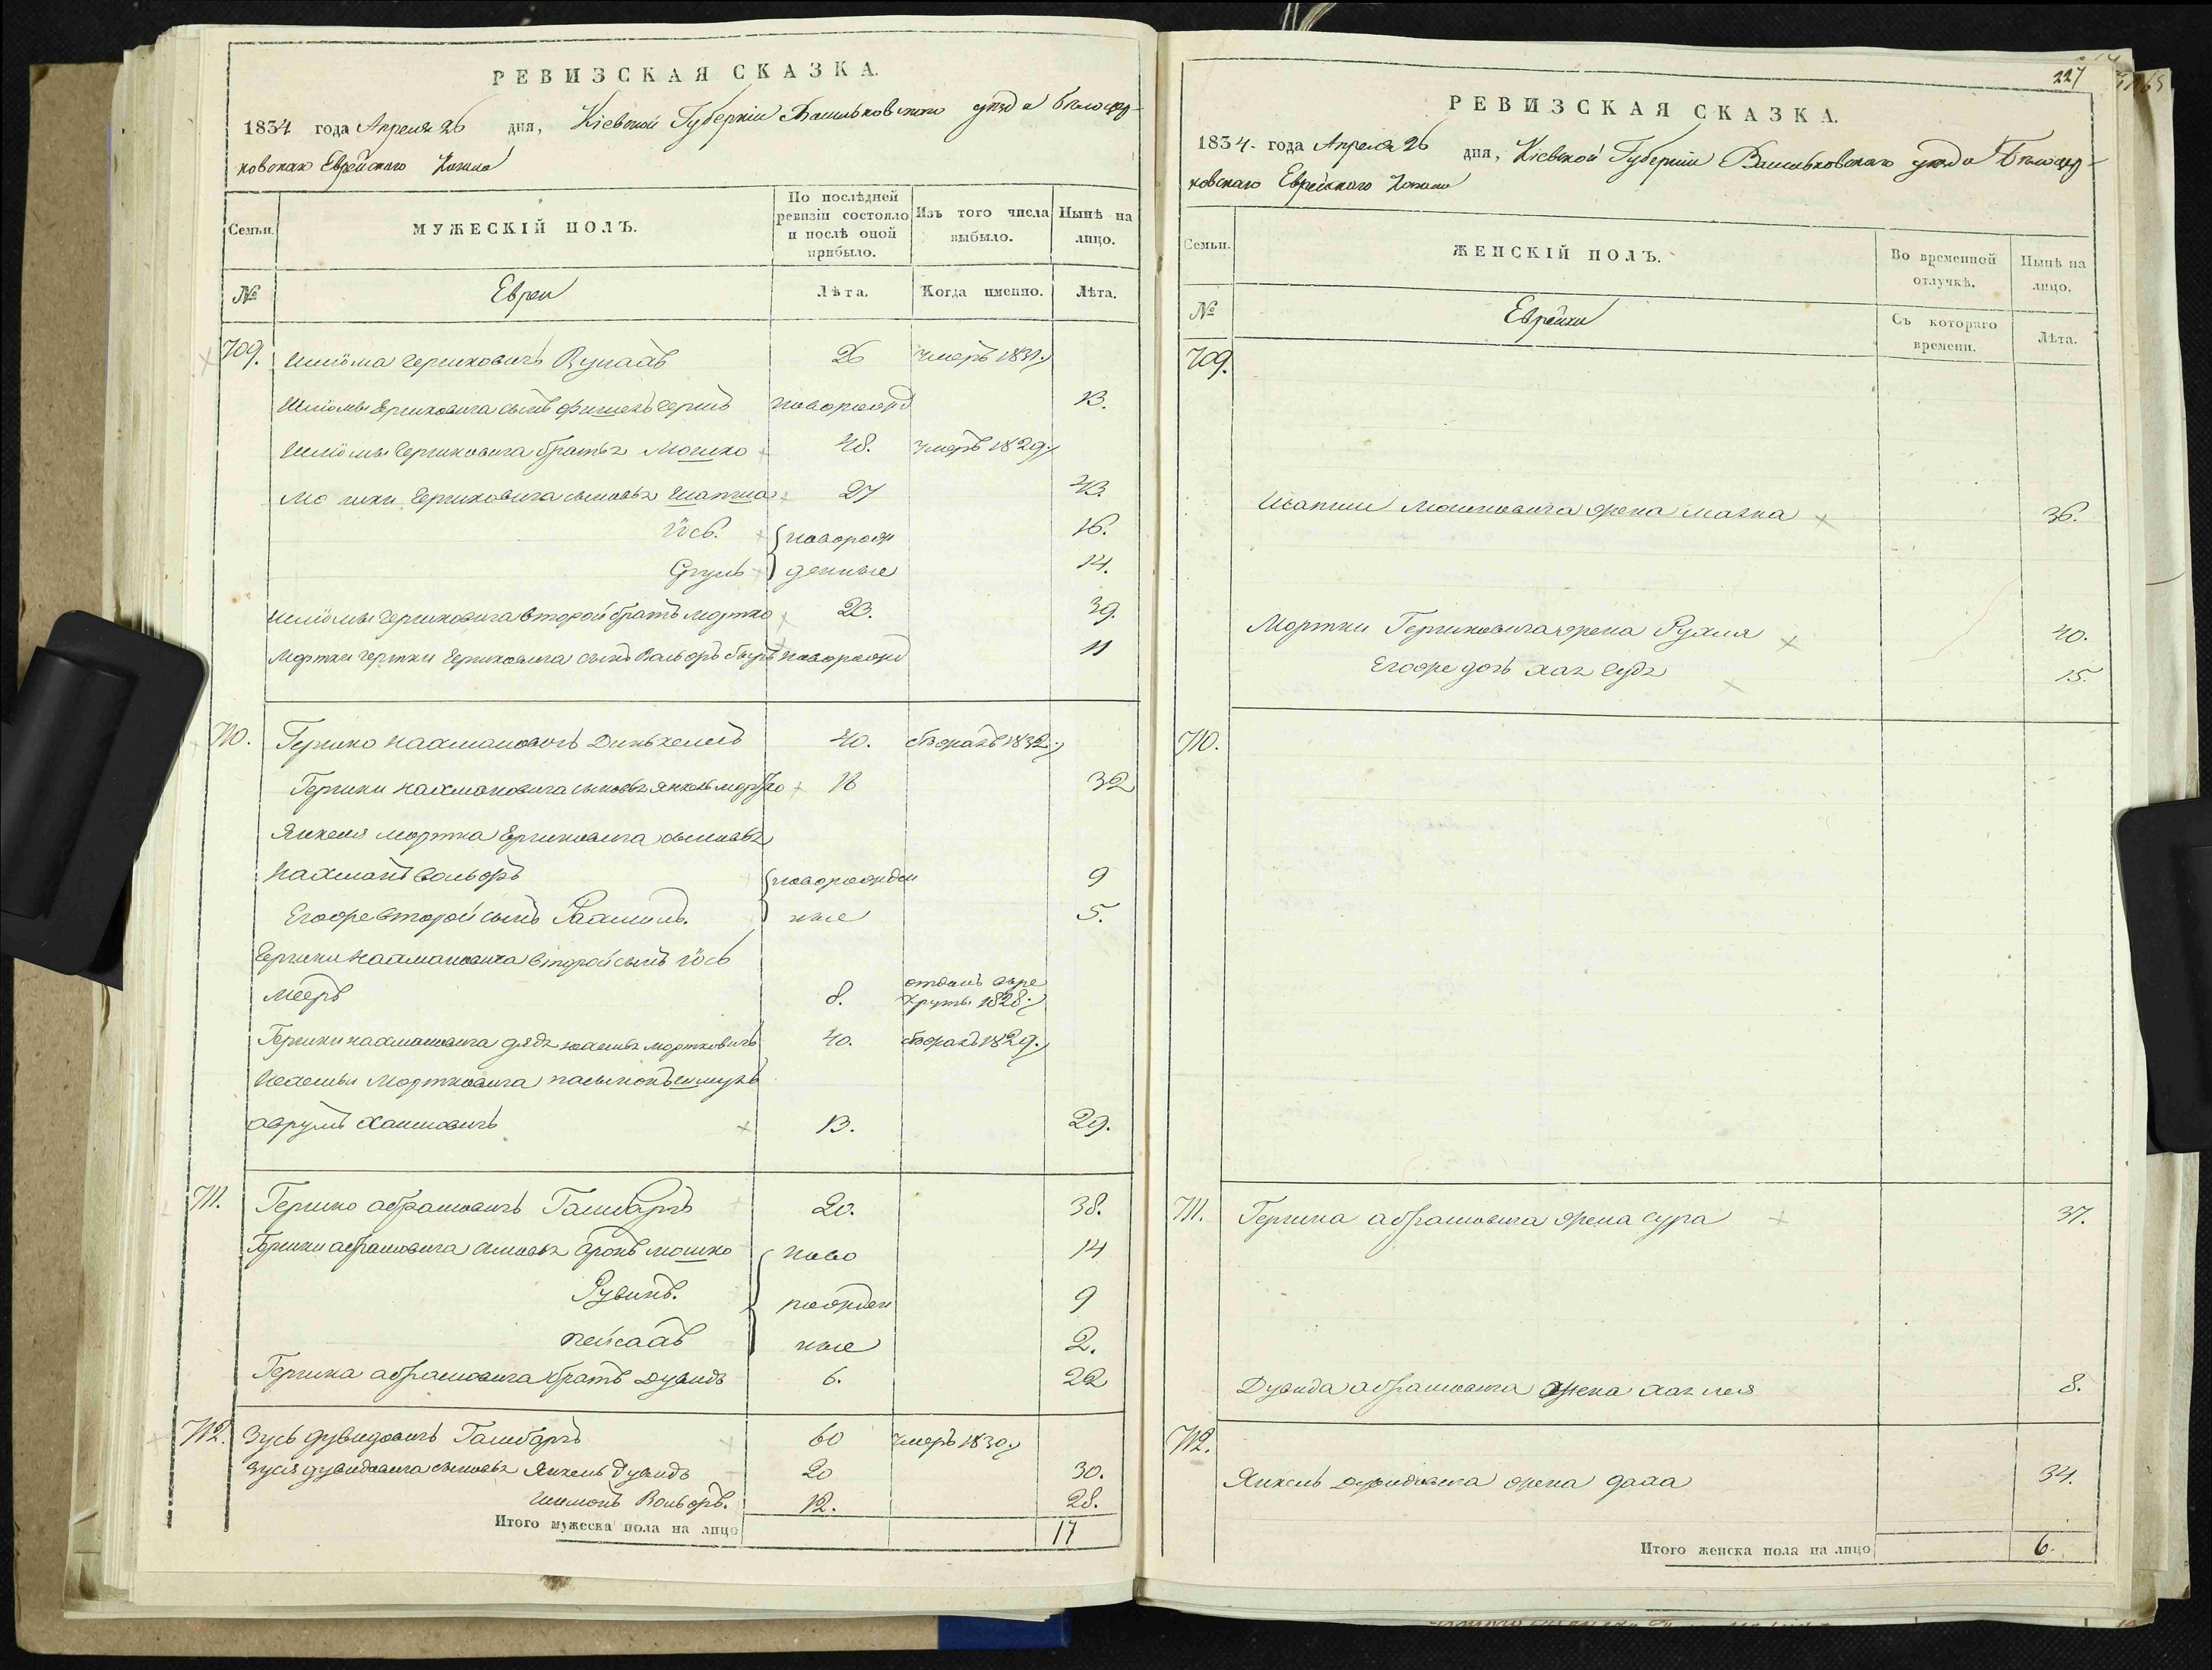 РЕВИЗСКАЯ СКАЗКА.
1834 года Апреля 26 дня, Кіевской Губерніи Васильковского уѣзда Белоцер-
ковскаго Еврейскаго Кагала
Семьи.
МУЖЕСКІЙ ПОЛЪ.
По послѣдней ревизіи состояло и послѣ оной прибыло.
Изъ того числа выбыло.
Нынѣ на лицо.
№
Евреи
Лѣта.
Когда именно.
Лѣта.
709. Шліома Гершковичъ 26 умеръ 1831
Шліомы Ершковича сынъ Фишель Гершъ новорожд 13.
Шліомы Гершковича братъ Мошко 48. умеръ 1829
Мошки Гершковича сыновья Шапша 27 43.
Іось. новорож 16.
Сруль денные 14.
Шліомы Гершковича второй братъ Мортко 23. 39.
Мортки Гершки Гершковича сынъ Вольфъ новорожд 11
710. Гершко Нахмановичъ 40. сбежалъ 1832
Гершки Нахмановича сыновья Янкель Мортко 18 32
Янкеля Мортка Ершковича сыновья
Нахманъ Вольфъ новорожден 9
Его же второй сынъ Рахмиль. ные 5.
Гершки Нахмановича второй сынъ Іось
Мееръ 8. отданъ в ре
круты 1828
Гершки Нахмановича дядя Мортковичъ 40. сбежалъ 1829
Мортковича пасынокъ Шмуль
Аврумъ Хаимовичъ 13. 29.
711. Гершко Абрамовичъ Гамбаргъ 20. 38.
Гершки Абрамовича сыновья Аронъ Мошко ново 14
Рувинъ. рожден 9
Пейсахъ ные 2.
Гершка Абрамовича братъ Дувидъ 6. 22
712. Зусь Дувидовичъ Гамбаргъ 60 умеръ 1830
Зуся Дувидовича сыновья Янкель Дувидъ 20 30.
Шимонъ Вольфъ. 12. 28.
Итого мужеска пола на лицо 17
227
РЕВИЗСКАЯ СКАЗКА.
1834. года Апреля 26 дня, Кіевской Губерніи Васильковскаго уѣзда Белоцер-
ковскаго Еврейскаго Кагала
Семьи.
ЖЕНСКІЙ ПОЛЪ.
Во временной отлучкѣ.
Нынѣ на лицо.
№
Еврейки
Съ котораго времени.
Лѣта.
709.
Шапши Мошковича жена Малка 36.
Мортки Гершковича жена Рухля 40.
Его же дочь Хая Судя 15.
710.
711. Гершка Абрамовича жена Сура 37.
Дувида Абрамовича жена Хая Лея 8.
712.
Янкель Дувидовича жена 34.
Итого женска пола на лицо 6.